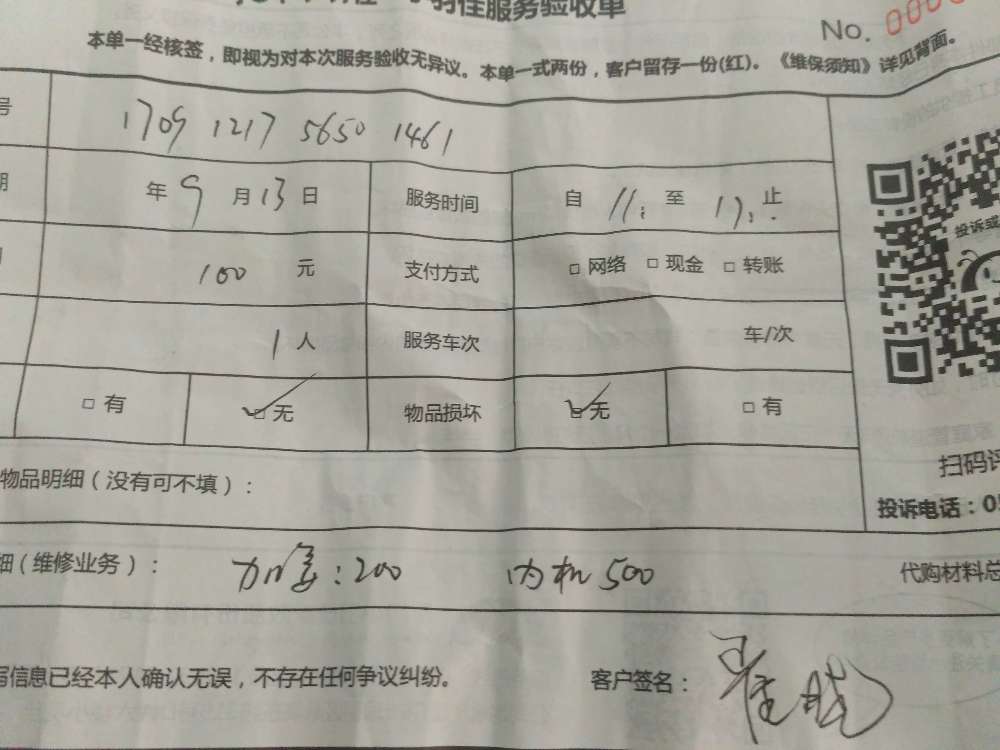 服务验收单
No. 000
本单一经核签，即视为对本次服务验收无异议。本单一式两份，客户留存一份(红)。《维保须知》详见背面。
号 1709 1217 5650 1461
期 年 9 月 13 日 服务时间 自 11: 至 17: 止
100 元 支付方式 □ 网络 □ 现金 □ 转账
1 人 服务车次 车/次
□ 有 □ 无 物品损坏 □ 无 □ 有
投诉或
扫码评
物品明细（没有可不填）：
投诉电话：0
细（维修业务）： 200 内机 500 代购材料总
写信息已经本人确认无误，不存在任何争议纠纷。 客户签名：